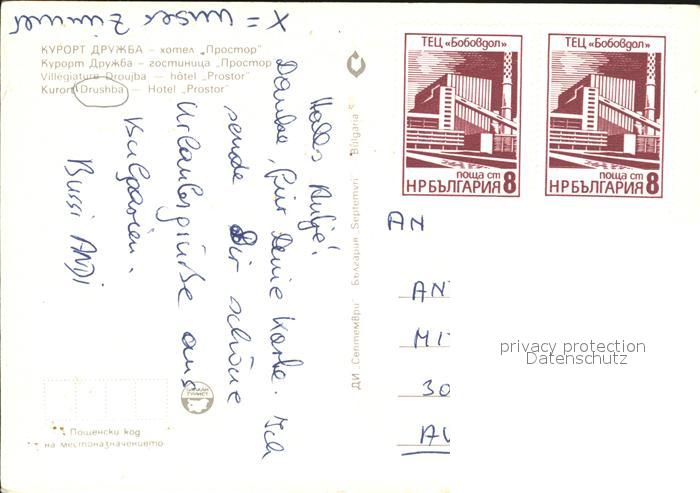 X = unser Zimmer
КУРОРТ ДРУЖБА – хотел „Простор"
Курорт Дружба – гостиница „Простор
Villégiature Droujba — hôtel „Prostor"
Kurort Drushba — Hotel „Prostor"
Hallo Antje!
Danke, für Deine Karte. Ich
sende Dir schöne
Urlaubsgrüße aus
Bulgarien.
Bussi ANDI
ДИ „Септември" България „Septemvri" Bulgaria
ТЕЦ „Бобовдол"
поща ст
НРБЪЛГАРИЯ 8
ТЕЦ „Бобовдол"
поща ст
НРБЪЛГАРИЯ 8
AN
AN
MI
30
AU
privacy protection
Datenschutz
БАЛКАН
ТУРИСТ
Пощенски код
на местоназначението